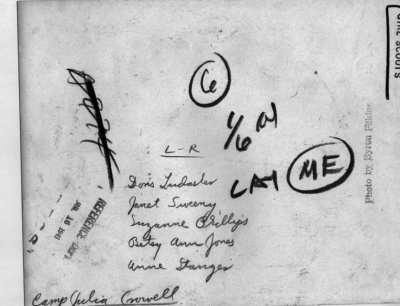 GIRL SCOUTS
6
1/6
ME
L-R
Photo by Byron Filkins
Doris
Janet Sweeny
Suzanne Phillips
Betsy Ann Jones
Anne Stanges
REFERENCE DEPT
Camp Julia Crowell